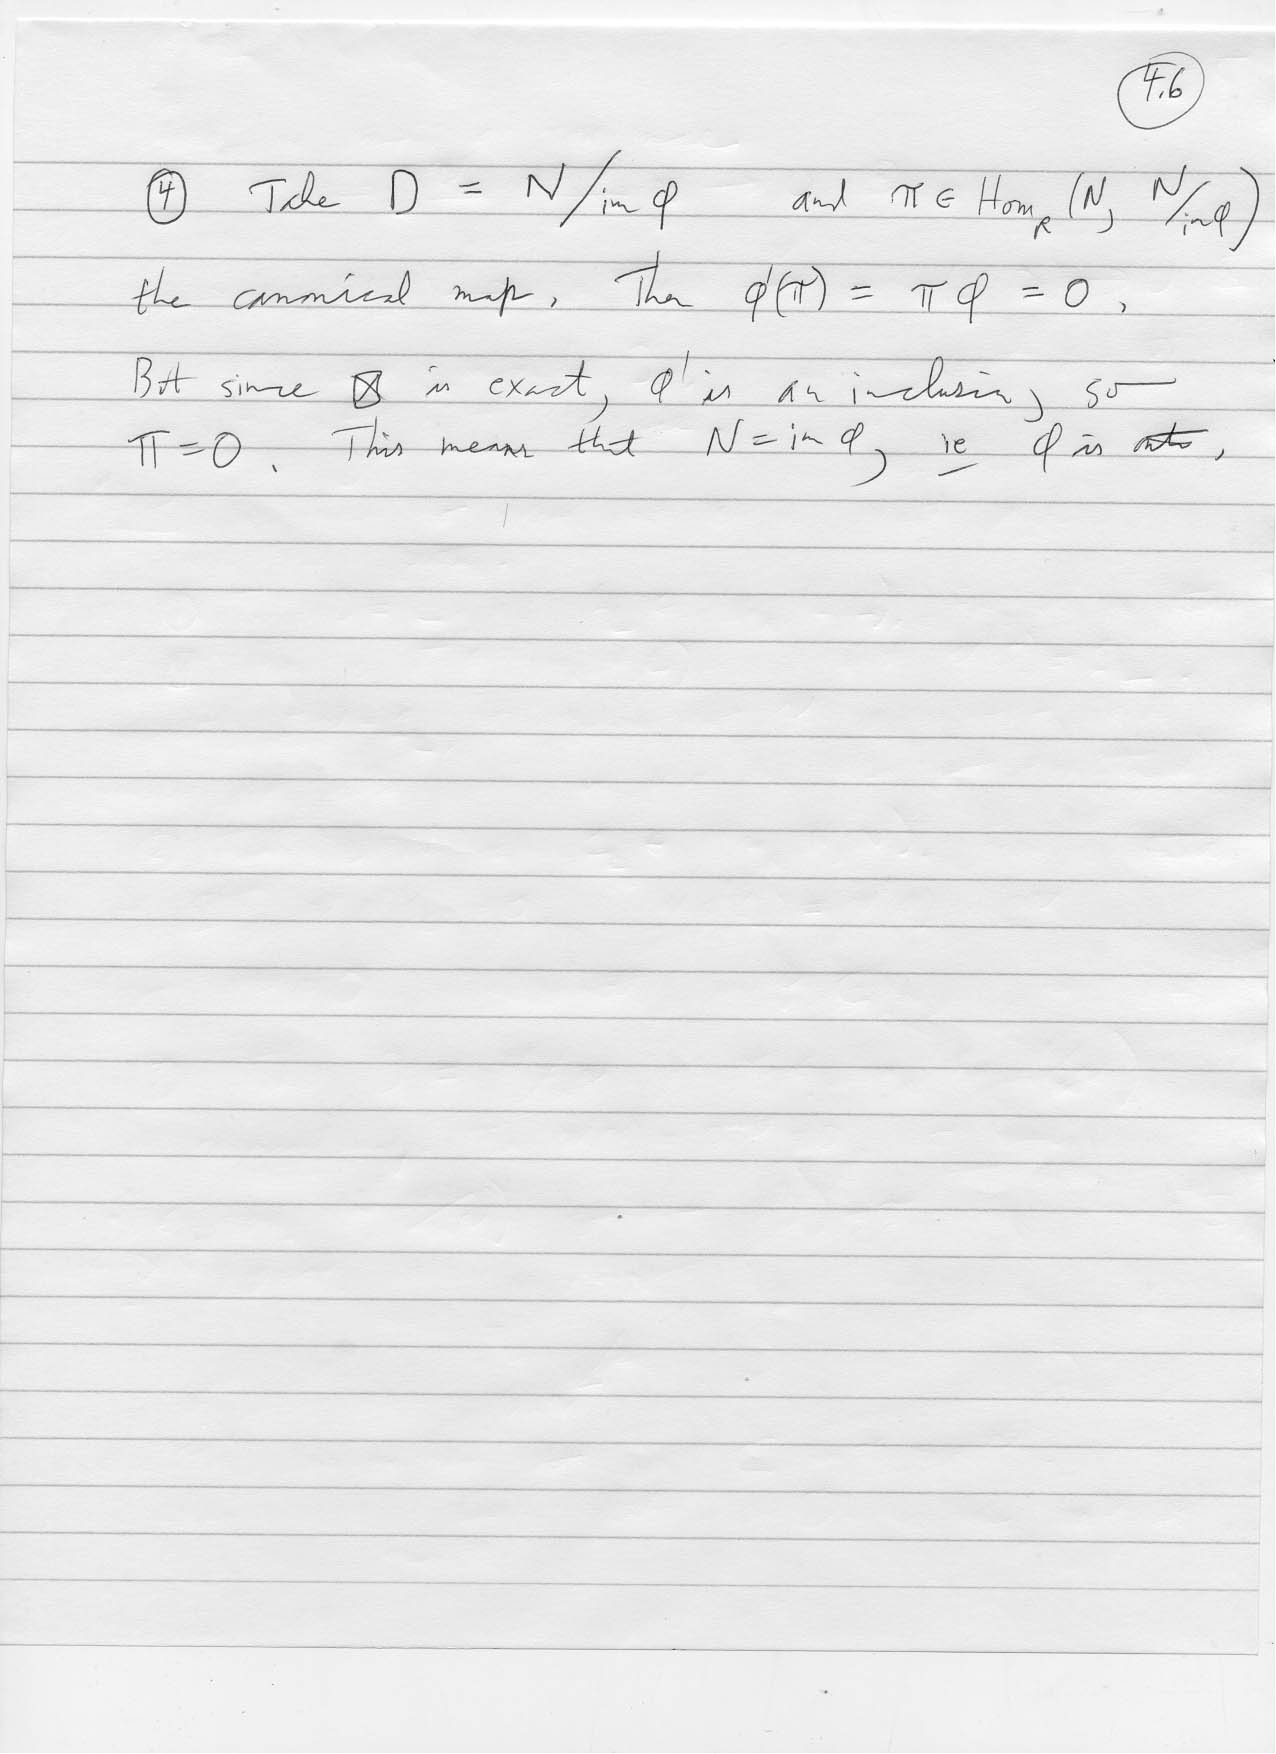 4.6
④ Take D = N/im φ and π ∈ Hom_R (N, N/im φ)
the canonical map. Then φ'(π) = π φ = 0.
But since ⊠ is exact, φ' is an inclusion, so
π = 0. This means that N = im φ, ie φ is onto.